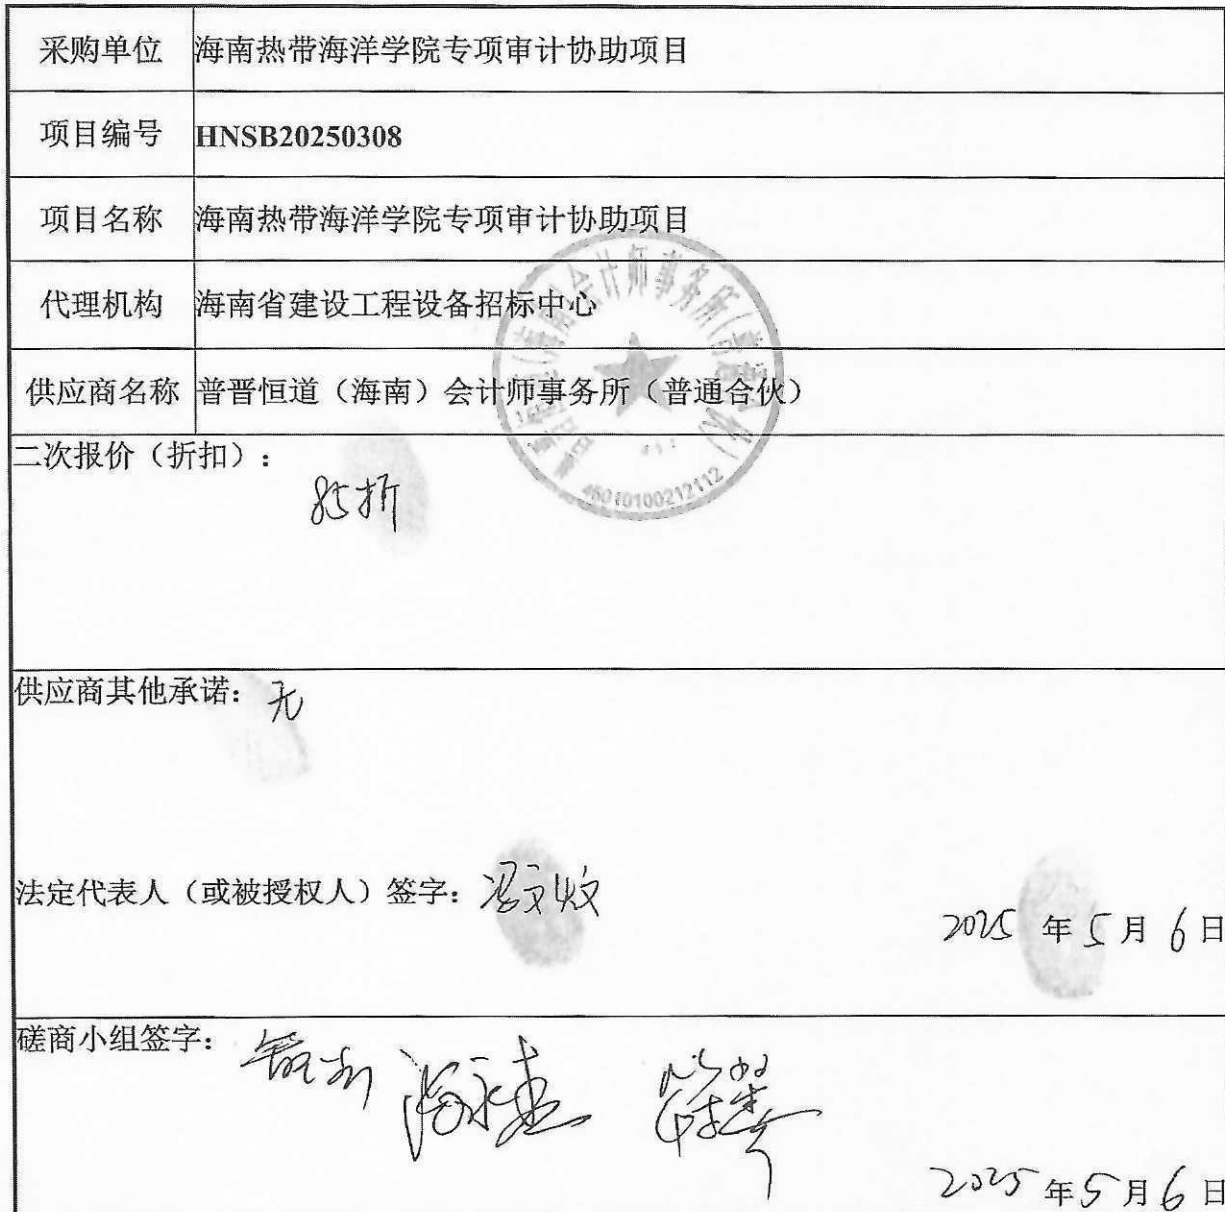 采购单位 海南热带海洋学院专项审计协助项目
项目编号 HNSB20250308
项目名称 海南热带海洋学院专项审计协助项目
代理机构 海南省建设工程设备招标中心
供应商名称 普晋恒道（海南）会计师事务所（普通合伙）
46010100212112
二次报价（折扣）：
85折
供应商其他承诺：无
法定代表人（或被授权人）签字：
2025 年 5 月 6 日
磋商小组签字：
2025 年 5 月 6 日